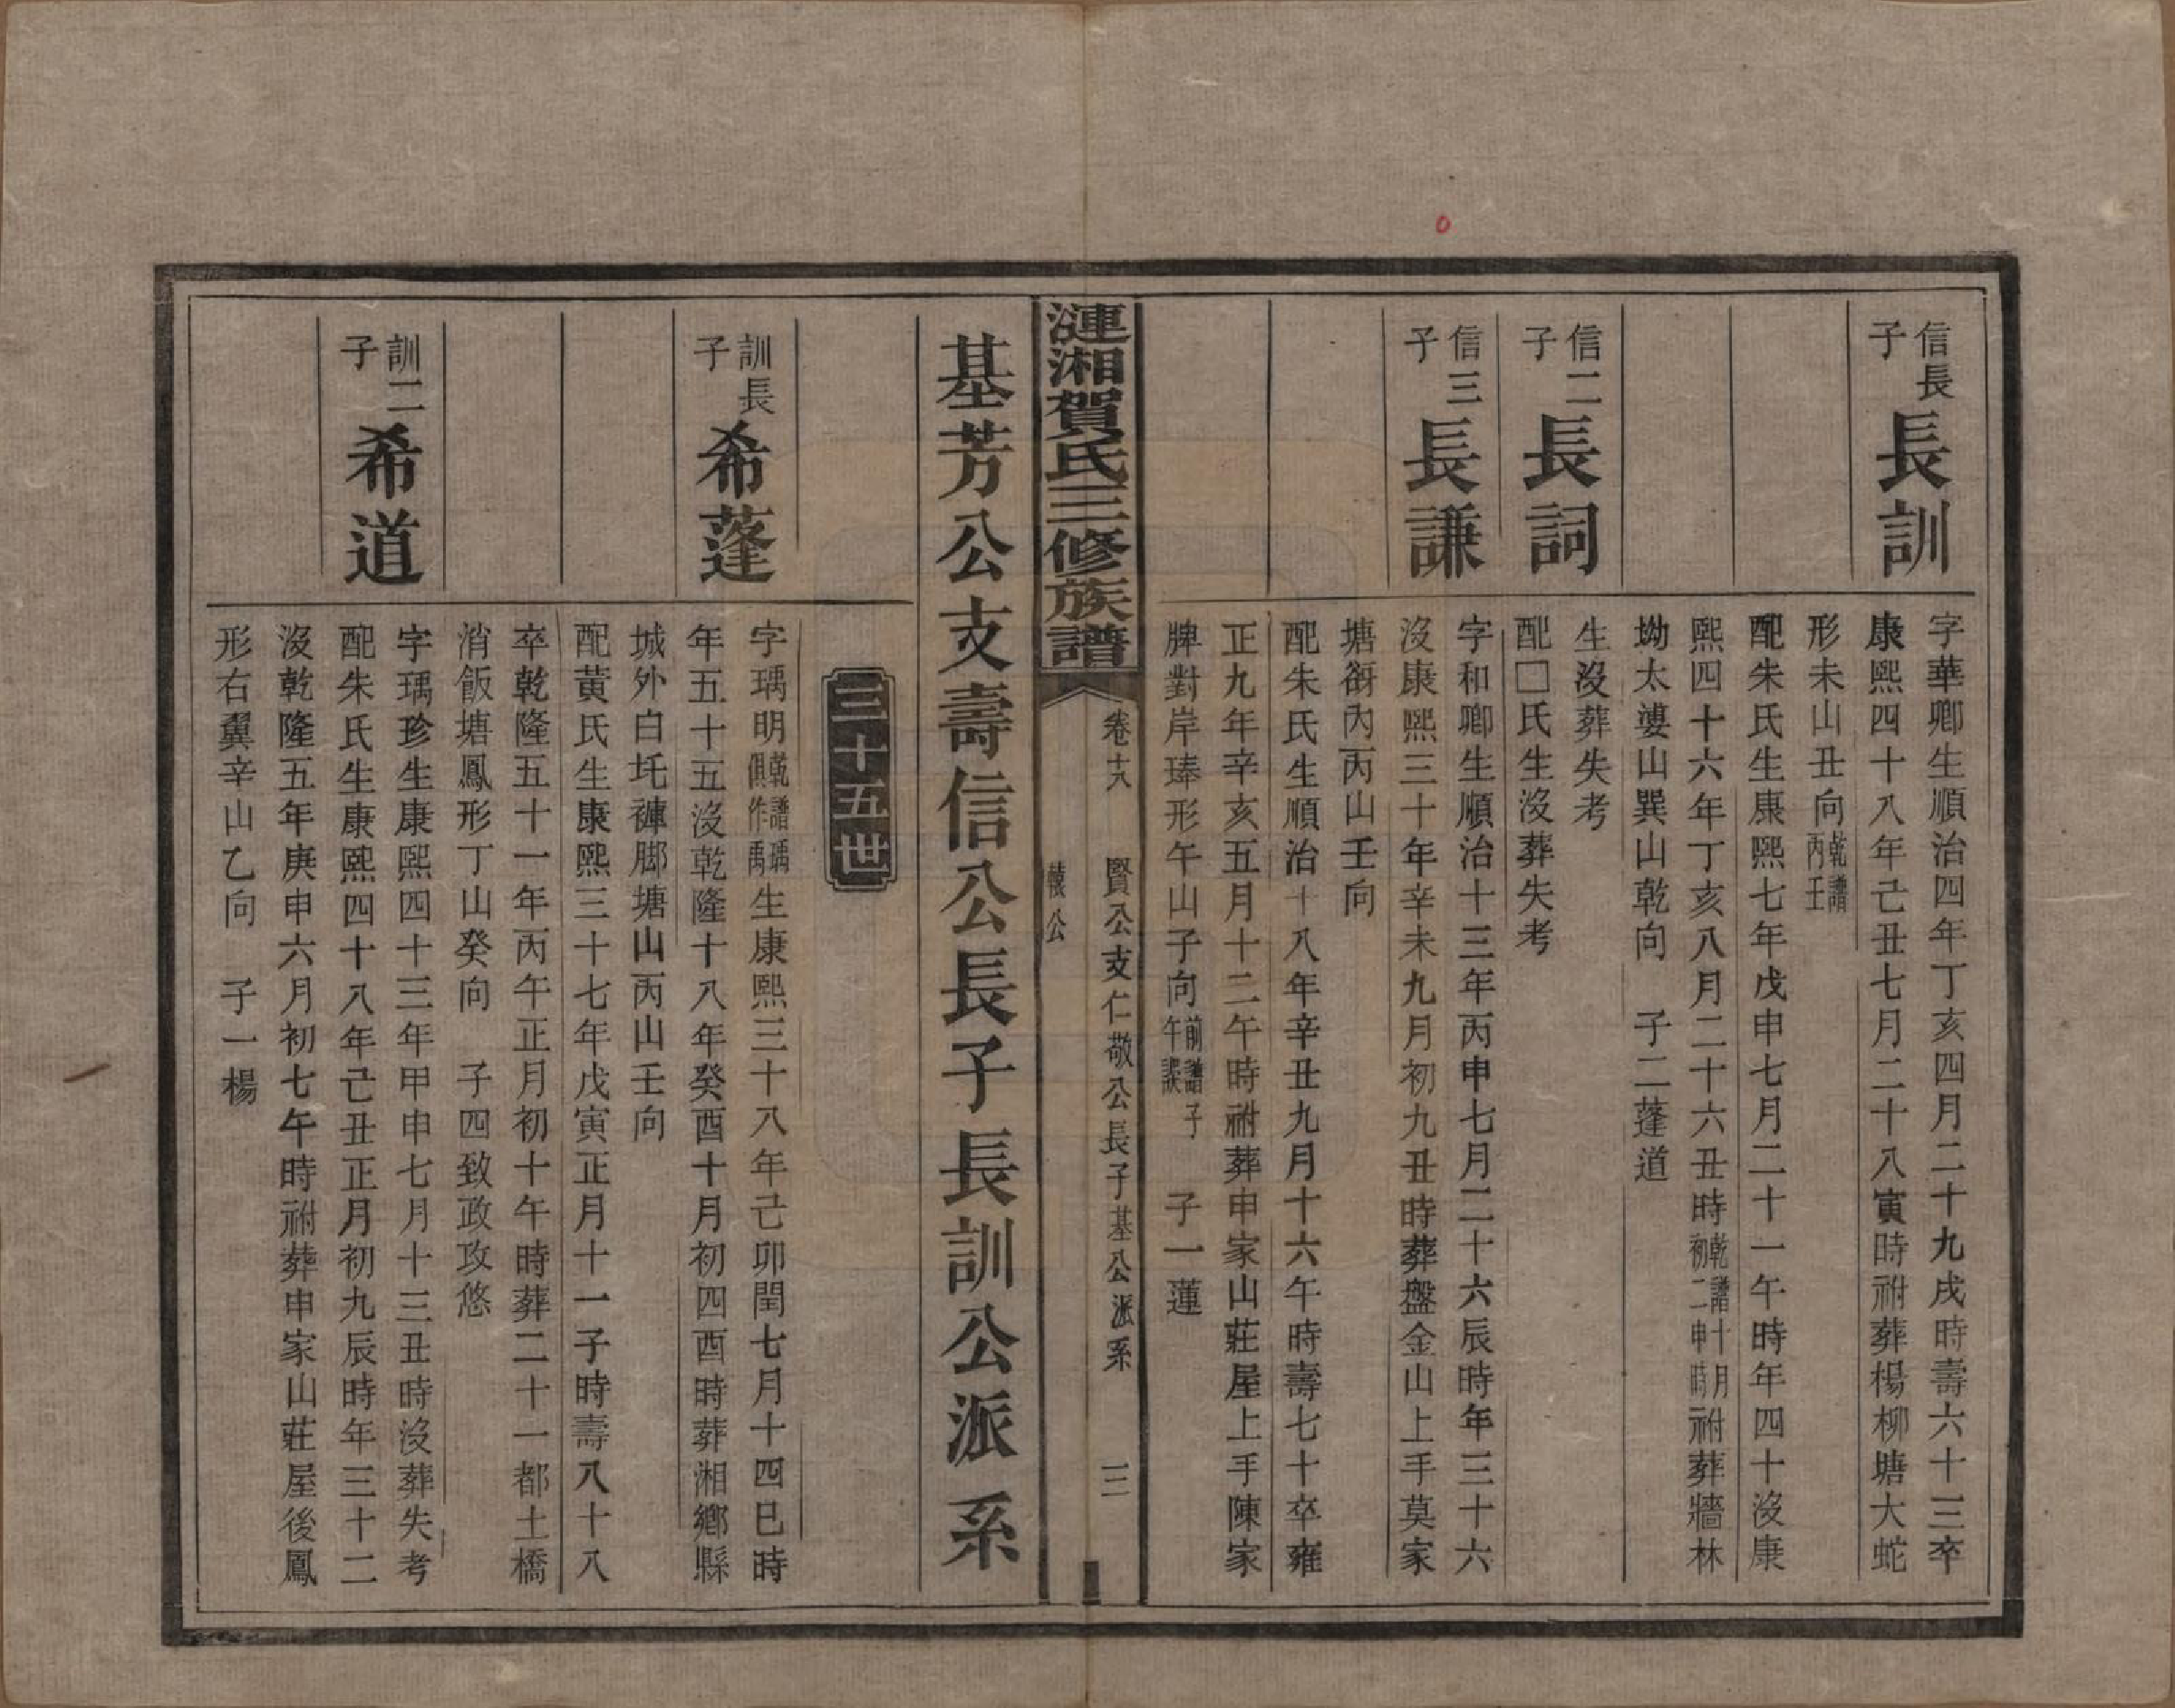 信長子
長訓
字華卿生順治四年丁亥四月二十九戌時壽六十三卒
康熙四十八年己丑七月二十八寅時祔葬楊柳塘大蛇
形未山丑向乾譜丙壬
配朱氏生康熙七年戊申七月二十一午時年四十沒康
熙四十六年丁亥八月二十六丑時乾譜十月初二申時祔葬牆林
坳太婆山巽山乾向　子二蓬道
信二子
長詞
生沒葬失考
配□氏生沒葬失考
信三子
長謙
字和卿生順治十三年丙申七月二十六辰時年三十六
沒康熙三十年辛未九月初九丑時葬盤金山上手莫家
塘衕內丙山壬向
配朱氏生順治十八年辛丑九月十六午時壽七十卒雍
正九年辛亥五月十二午時祔葬申家山莊屋上手陳家
牌對岸琫形午山子向前譜子午誤　子一蓮
漣湘賀氏三修族譜
卷十八
賢公支仁敬公長子基公派系
轅公
三
基芳公支壽信公長子長訓公派系
三十五世
訓長子
希蓬
字瑀明乾譜瑀俱作禹生康熙三十八年己卯閏七月十四巳時
年五十五沒乾隆十八年癸酉十月初四酉時葬湘鄉縣
城外白圫褲腳塘山丙山壬向
配黃氏生康熙三十七年戊寅正月十一子時壽八十八
卒乾隆五十一年丙午正月初十午時葬二十一都土橋
消飯塘鳳形丁山癸向　子四致政攻悠
訓二子
希道
字瑀珍生康熙四十三年甲申七月十三丑時沒葬失考
配朱氏生康熙四十八年己丑正月初九辰時年三十二
沒乾隆五年庚申六月初七午時祔葬申家山莊屋後鳳
形右翼辛山乙向　子一楊